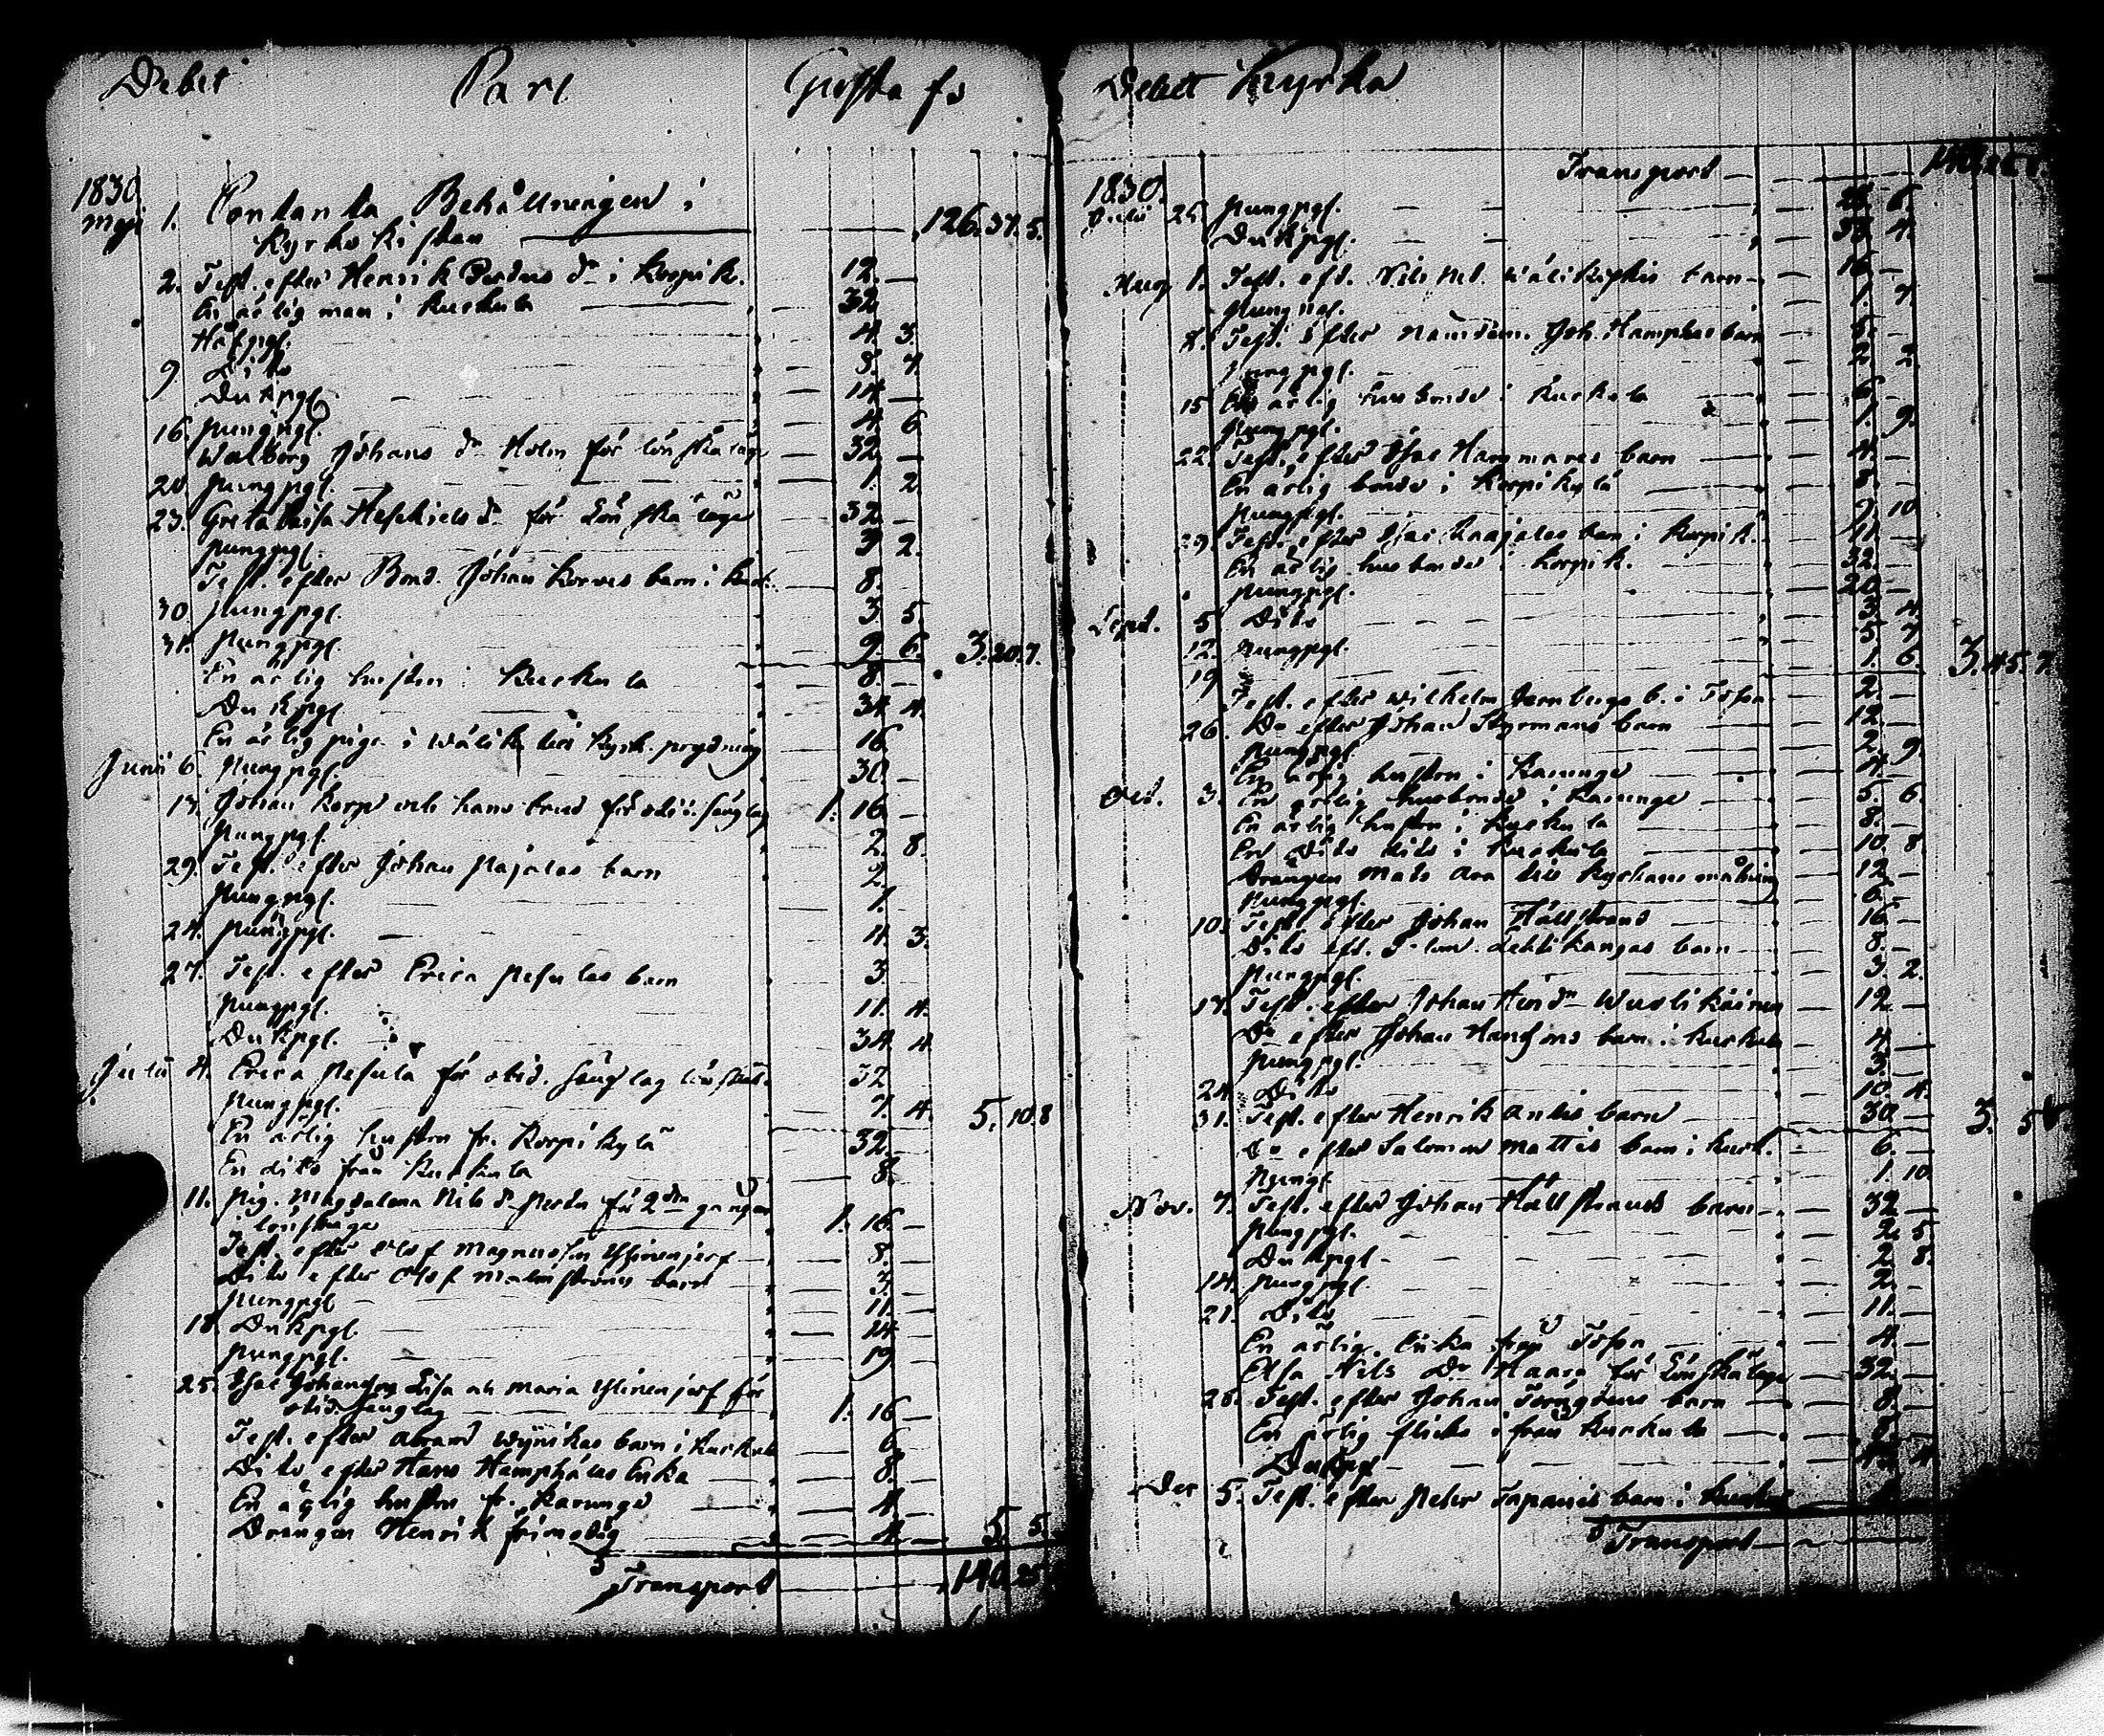 Debet Carl Gustafs
1830
Maji 1. Contanta Behållningen i
Kyrko Kistan 126. 37. 5.
2. Test. efter Henrik Perdus dr i Korpik. 12. —
En ärlig man i Kuckula 32
Håfpgl. 4. 3.
9 Dito 8. 7
Dukpgl. 14 —
16. Pungpgl. 4 6
Walborg Johans dr Holm för lönskaläge 32. —
20. Pungpgl. 1. 2
23. Greta Caisa Heskiels dr för Lönskaläge 32 —
Pungpgl. 3 2.
Test. efter Bond. Johan Korwas barn i Kuck. 8.
30 Pungpgl. 3 5.
31. Pungpgl. 9. 6. 3. 20. 7.
En ärlig hustru i Kuckula 8. —
Dukpgl. 34. 4.
En ärlig piga i Wälik. till Kyrk. prydning 16
Junii 6. Pungpgl. 30. —
13. Johan Korpi och hans brud för otid. sänglag 1. 16 —
Pungpgl. 2. 8.
29. Test. efter Johan Pajalas barn 2.
Pungpgl. 7.
24. Pungpgl. 4. 3.
27. Test. efter Erica Pesulas barn 3.
Pungpgl. 11. 4.
Dukpgl. 34. 4.
Julii 4. Erica Pesula för otid. sänglag 32
Pungpgl. 7. 4. 5. 10. 8
En ärlig hustru fr. Korpikylä 32. —
En dito från Kuckula 8.
11. Pig. Magdalena Nils dr Perdu för 2dra gången
i lönskläge 1. 16 —
Test. efter Olof Magnusson Ylinenjerf 8.
Dito efter Olof Malmströms barn 3.
Pungpgl. 11. —
18. Dukpgl. 14 —
Pungpgl. 19
25. Isac Johansson Lisa och Maria Ylinenjerf för
otid. sänglag 1. 16 —
Test. efter Abram Wyinikas barn i Kuckula 6.
Dito efter Hans Hamphälas Enka 8.
En ärlig hustru fr. Karunge 4
Drängen Henrik Frimodig 4. 5. 5.
Transport 140. 25.
Debet Kyrka
Transport
1830.
Julii 25. Pungpgl. 6.
Dukpgl. 4.
Aug. 1. Test. eft. Nils barn 16. —
Pungpgl. 1. 7.
8. Test. efter Nämdem. Joh. Hamphas barn 6. —
Pungpgl. 2. 2.
15 En ärlig husbonde i Kuckula 6 —
Pungpgl. 1. 9.
22. Test. efter Isac Hammares barn 4. —
En ärlig bonde i Korpikylä 8. —
Pungpgl. 9. 10
29. Test. efter Isac Knajalas barn i Korpik. 11. —
En ärlig husbonde i Korpik. 32. —
Pungpgl. 20 —
Sept. 5. Dito 3. 4.
12. Pungpgl. 3. 7
19 1. 6. 3. 45. 7.
Test. efter Wilhelm Jernbergs b. i Tossa 2. —
26. Do efter Johan Styrmans barn 12. —
Pungpgl. 2. 9.
En ärlig hustru i Karunge 4. —
Oct. 3. En ärlig husbonde i Karunge 5. 6.
En ärlig hustru i Kuckula 8. —
En dito dito i Kuckula 10. 8.
Drängen Mats Ara till Kyrkans målning 12 —
Pungpgl. 6. —
10. Test. efter Johan Hällstrand 16. —
Dito eft. Lehtikangas barn 8. —
Pungpgl. 3. 2.
17. Test. efter Johan Hend. Wuolikainen 12 —
Do efter Johan Hansons barn i Kuckula 4 —
Pungpgl. 3. —
24. Dito 10. 4.
31. Test. efter Henrik Antis barn 30 — 3. 5
Do efter Salomon Mattis barn i Kuck. 6. —
Pungpgl. 1. 10
Nov. 7. Test. efter Johan Hällstrands barn 32 —
Pungpgl. 2. 5
Dukpgl. 2 8.
14. Pungpgl. 2. —
21. Dito 11. —
En ärlig Enka från Tossa 4. —
Elsa Nils Dr Haara för Lönskaläge 32. —
28. Test. efter Johan Törngrens barn 8. —
En ärlig flicka ifrån Kuckula 8. —
Dukpgl. 4
Dec 5. Test. efter Peter Tapanis barn i Kuckula
Transport